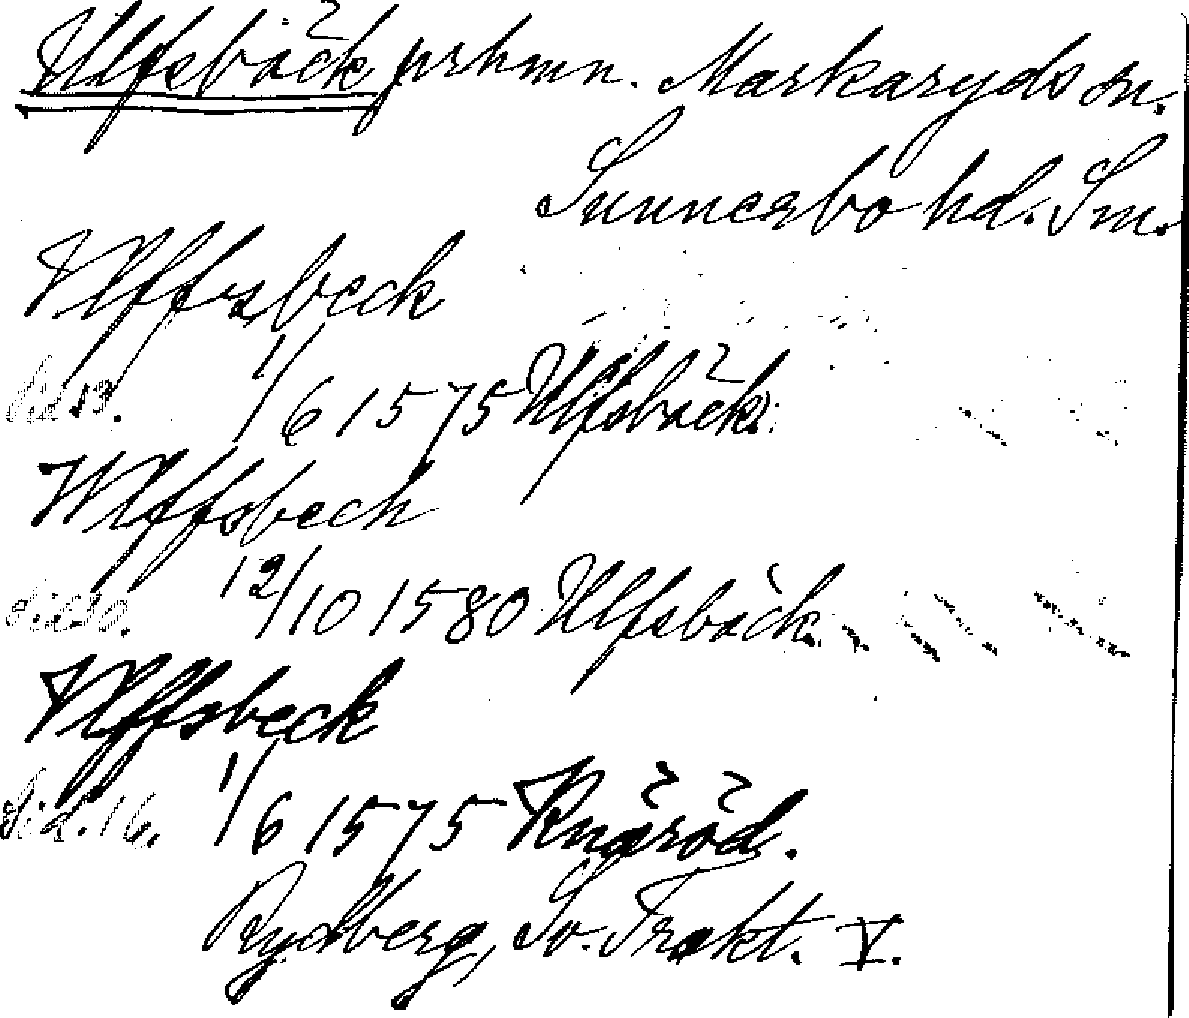 Ulfsbäck prhmn. Markaryds sn.
Sunnerbo hd. Sm.
Ulffsbeck
Sid 13. 1/6 1575 Ulfsbäck.
Wlffsbech
12/10 1580 Ulfsbäck.
Vlffsbeck
Sid. 16. 1/6 1575 Knäröd.
Rydberg, Sv. Trakt. V.